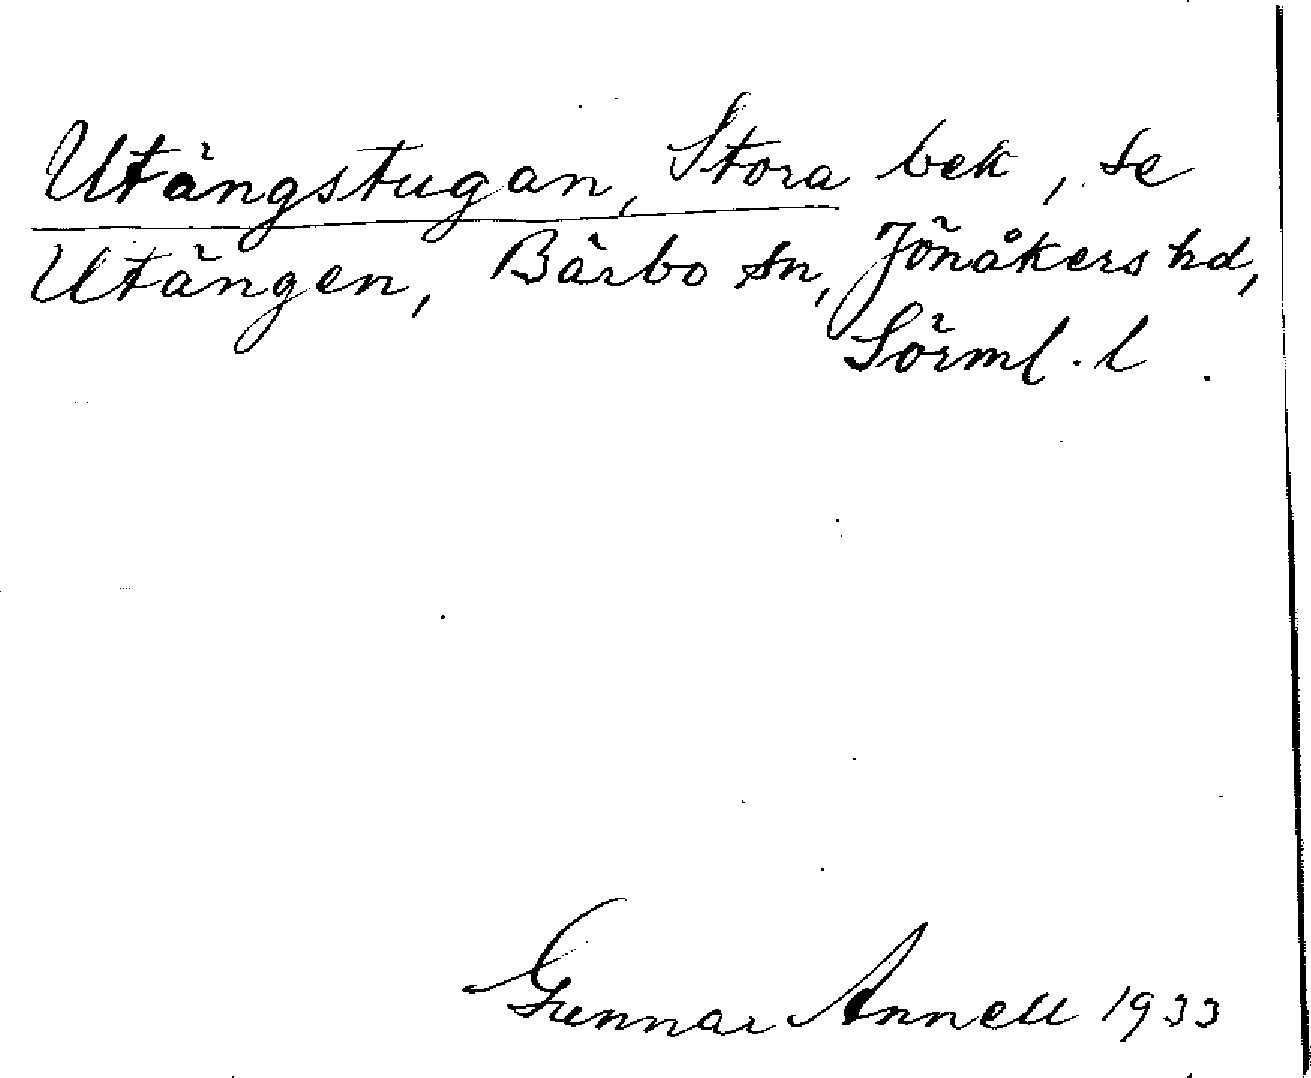 Utängstugan, Stora bek, se
Utängen, Bärbo sn, Jönåkers hd,
Sörml. l.
Gunnar Annell 1933